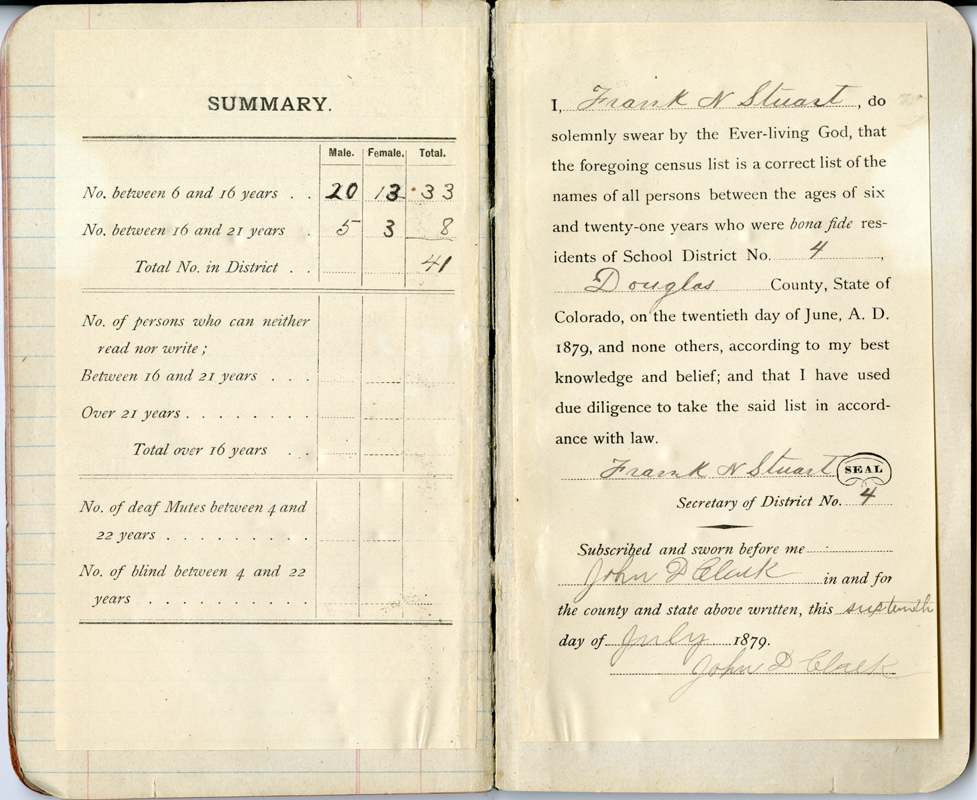 SUMMARY.
Male. Female. Total.
No. between 6 and 16 years . . 20 13 33
No. between 16 and 21 years . 5 3 8
Total No. in District . . 41
No. of persons who can neither
read nor write;
Between 16 and 21 years . . .
Over 21 years . . . . . . . .
Total over 16 years . .
No. of deaf Mutes between 4 and
22 years . . . . . . . . .
No. of blind between 4 and 22
years . . . . . . . . . .
I, Frank N Stuart, do
solemnly swear by the Ever-living God, that
the foregoing census list is a correct list of the
names of all persons between the ages of six
and twenty-one years who were bona fide res-
idents of School District No. 4,
Douglas County, State of
Colorado, on the twentieth day of June, A. D.
1879, and none others, according to my best
knowledge and belief; and that I have used
due diligence to take the said list in accord-
ance with law.
Frank N Stuart SEAL
Secretary of District No. 4
Subscribed and sworn before me
John D Clark in and for
the county and state above written, this sixteenth
day of July 1879.
John D Clark